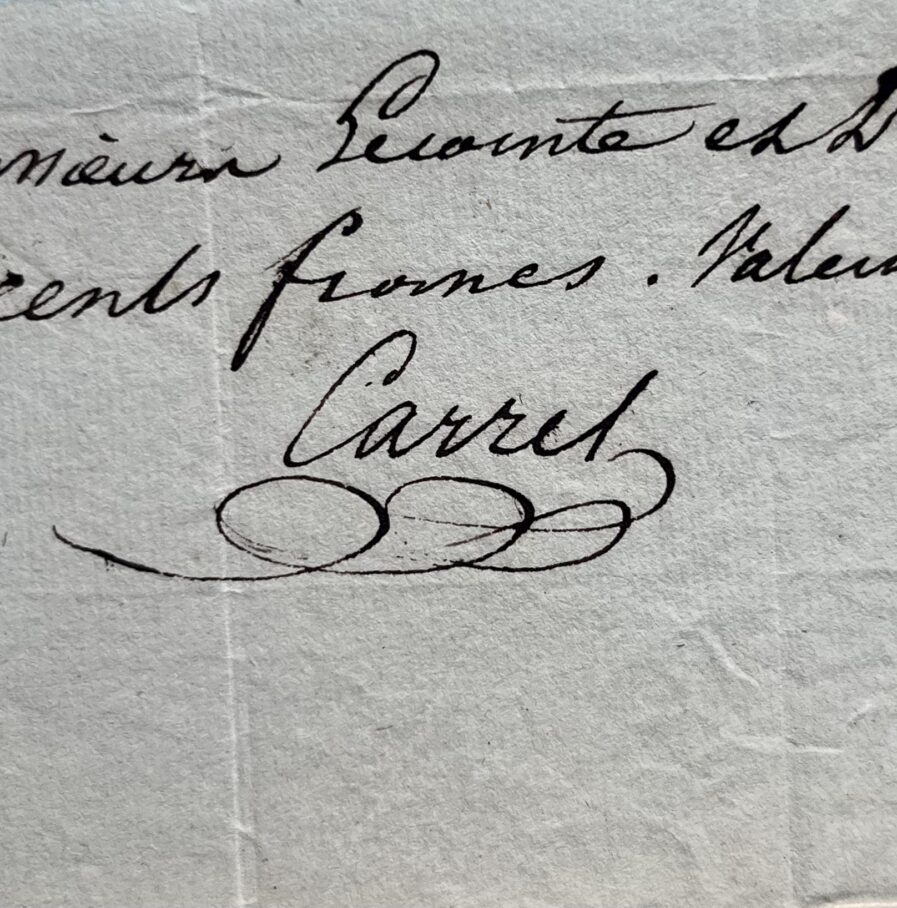 nsieurs Lecointe et D
cents francs. Valeur
Carrel